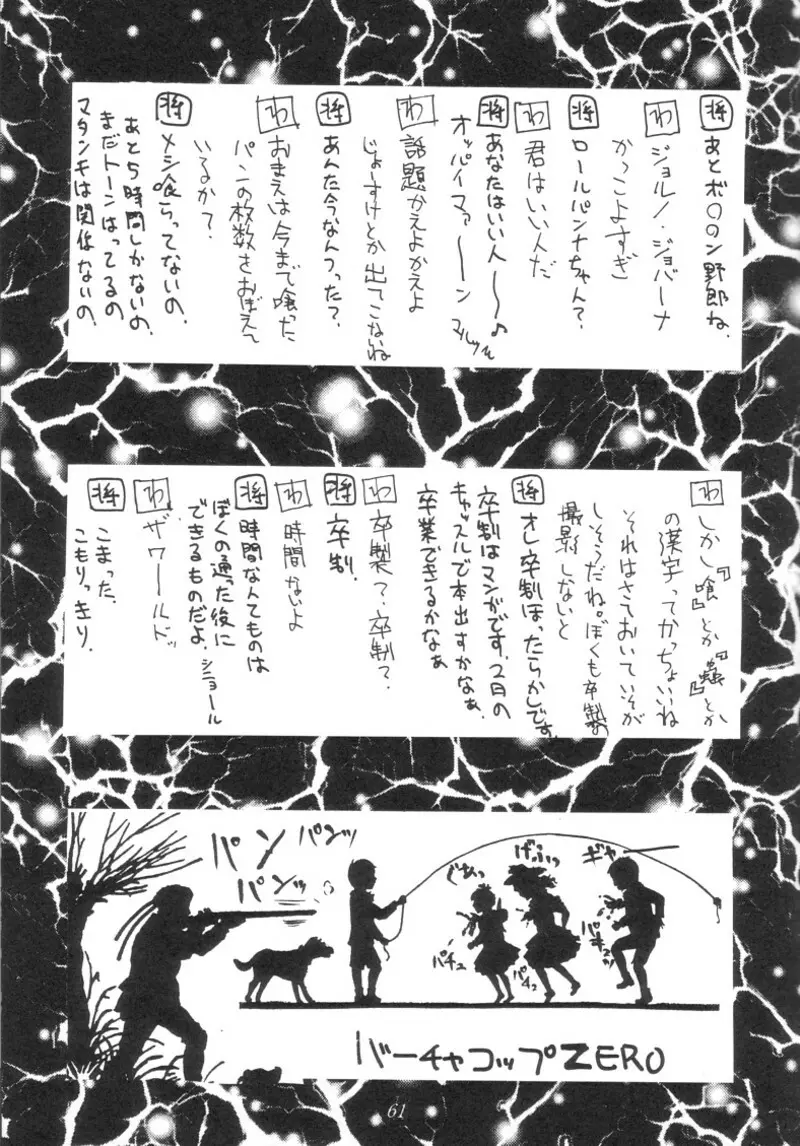 将 あとボ〇〇ン野郎ね.
わ ジョルノ・ジョバーナ
かっこよすぎ
将 ロールパンナちゃん?
わ 君はいい人だ
将 あなたはいい人〜〜♪
オッパイマァ〜〜ン
わ 話題かえよかえよ
じょーすけとか出てこないね
将 あんた今なんつった?
わ おまえは今まで喰った
パンの枚数をおぼえて
いるか?
将 メシ喰らってないの.
あと5時間しかないの.
まだトーンはってるの
マタンキは関係ないの.
わ しかし『喰』とか『蟲』とか
の漢字ってかっちょいいね
それはさておいていそが
しそうだね。ぼくも卒製の
撮影しないと
将 オレ卒制ほったらかしです.
卒制はマンガです. 2日の
キャッスルで本出すかなぁ.
卒業できるかなぁ
わ 卒製?.卒制?.
将 卒制.
わ 時間ないよ
将 時間なんてものは
ぼくの通った後に
できるものだよ. シニョール
わ ザ ワールドッ
将 こまった.
こもりっきり.
パン パンッ
パンッ
ぐあっ
げふっ
ギャー
パチュ
パチュ
パチュッ
バーチャコップZERO
61